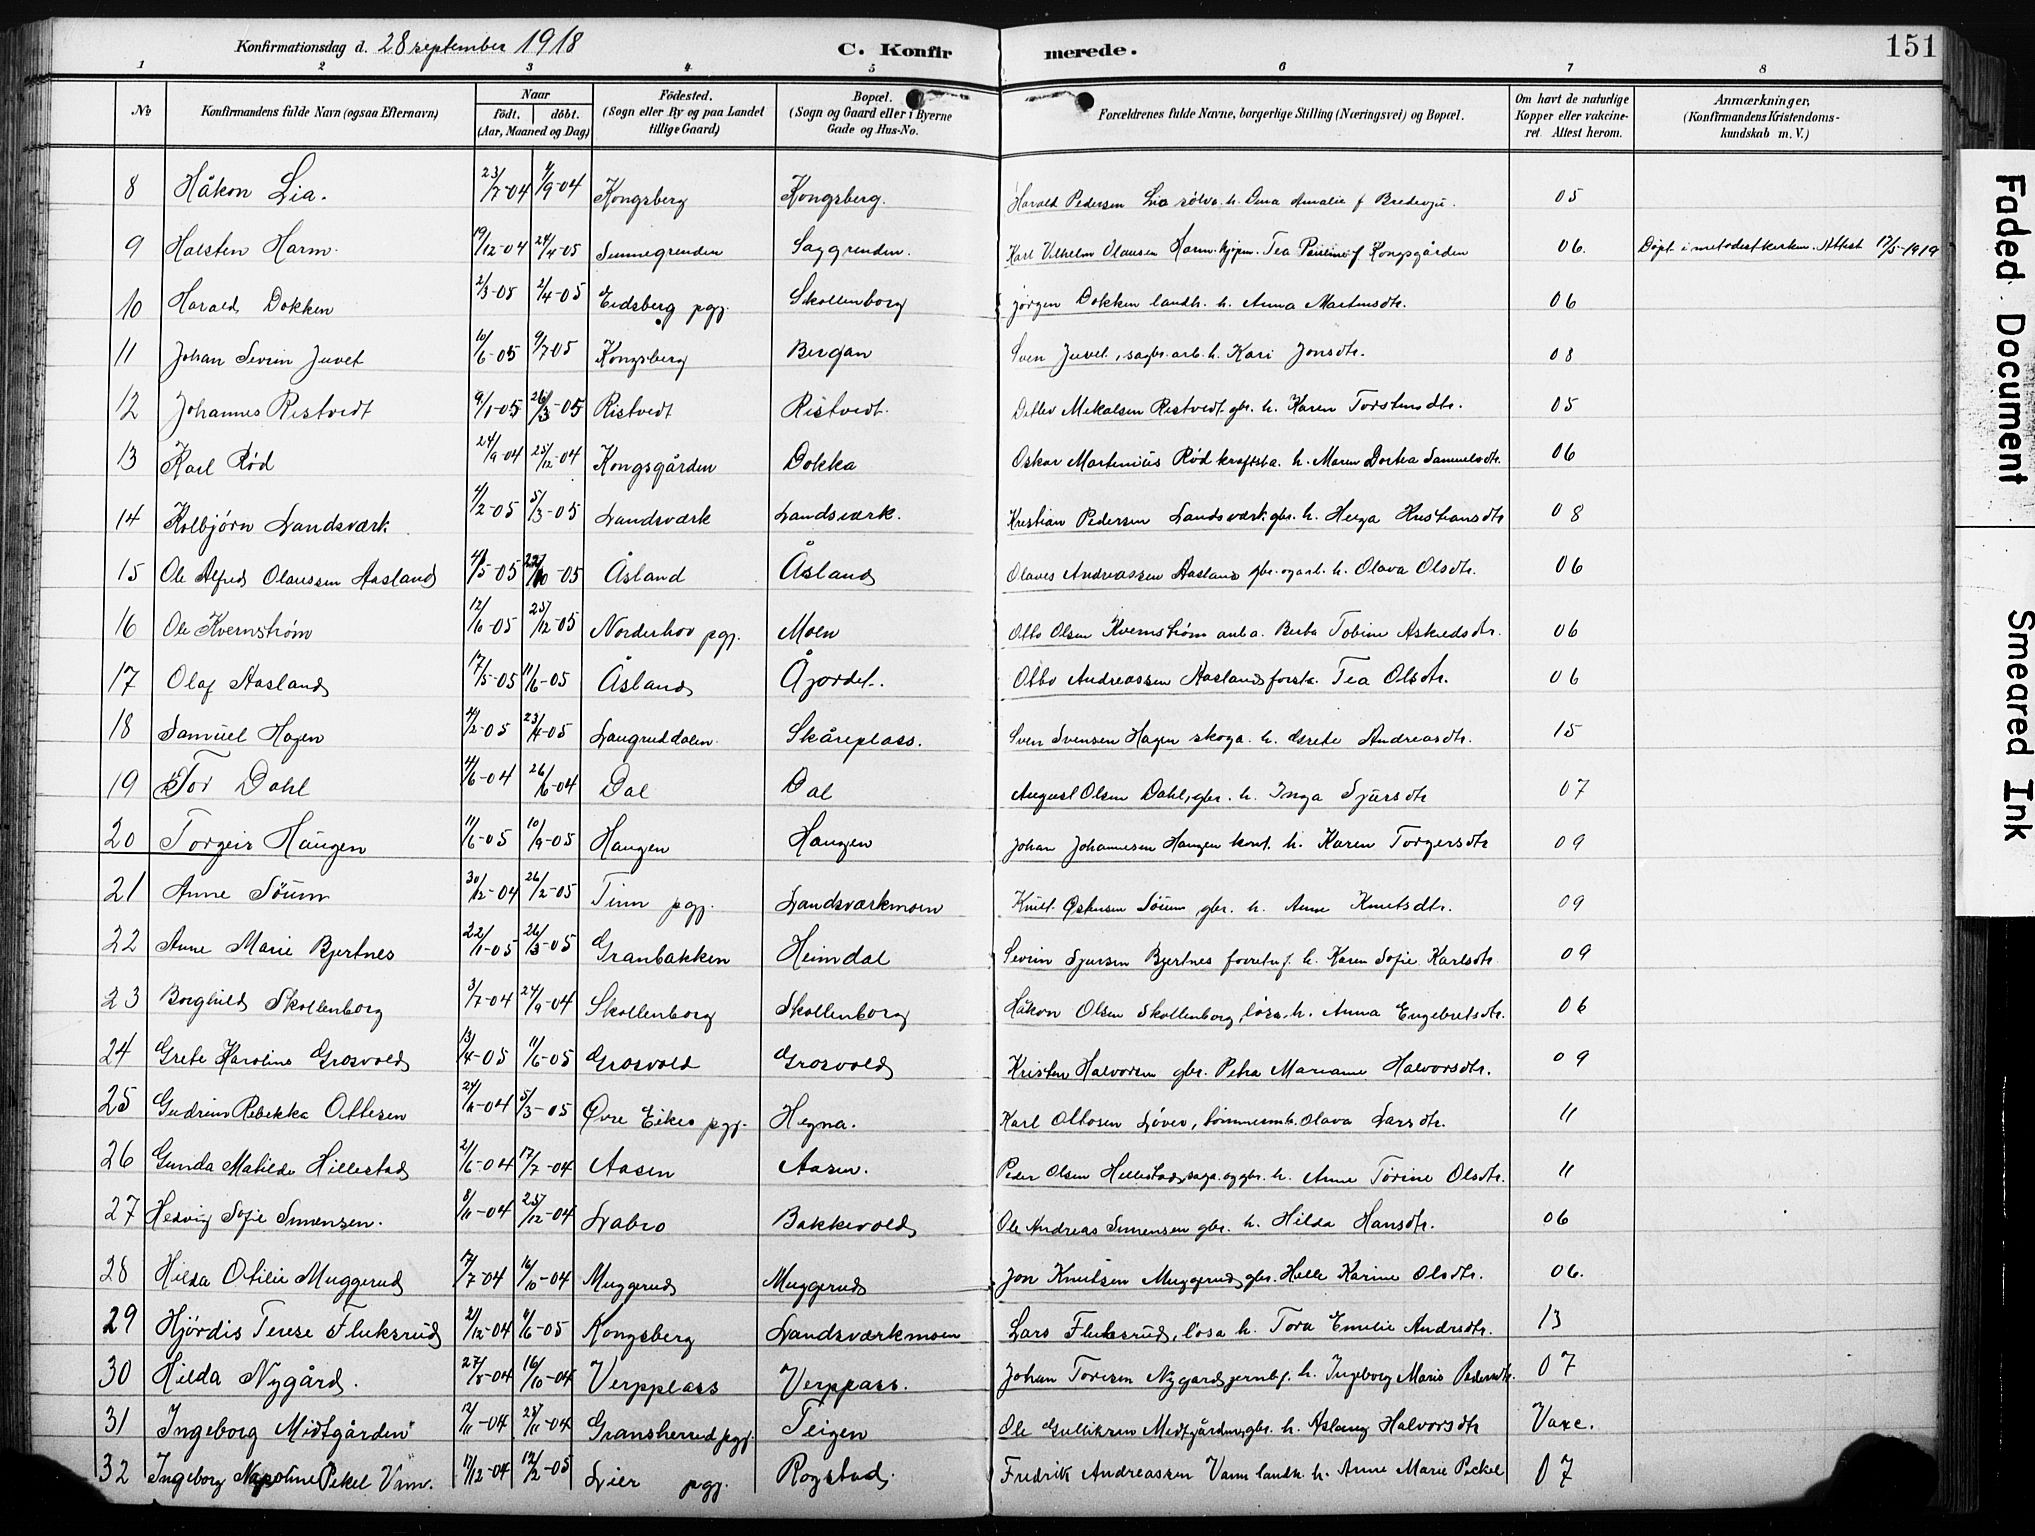 Konfirmationsdag d. 28 september 1918 C. Konfirmerede. 151
1 2 3 4 5 6 7 8
No Konfirmandens fulde Navn (ogsaa Efternavn) Naar Födt. döbt. (Aar, Maaned og Dag) Födested. (Sogn eller By og paa Landet tillige Gaard) Bopæl. (Sogn og Gaard eller i Byerne Gade og Hus-No. Forældrenes fulde Navne, borgerlige Stilling (Næringsvei) og Bopæl. Om havt de naturlige Kopper eller vakcineret. Attest herom. Anmærkninger. (Konfirmandens Kristendomskundskab m. V.)
8 Håkon Lia. 23/7-04 4/9-04 Kongsberg Kongsberg. Harald Pedersen Lia sølva. h. Dina Amalie f 05
9 Halsten Harm. 19/12-04 24/4-05 Sunnegrenden Saggrenden. Karl Vilhelm Olausen Harm kjøpm. Tea f Kongsgården 06. Døpt i metodistkirken. Attest 17/5-1919
10 Harald Dokken 2/3-05 2/4-05 Eidsberg pgj. Skollenborg Jørgen Dokken landh. h. Anna Martinsdtr. 06
11 Johan Sevrin Juvet 10/6-05 9/7 05 Kongsberg Bergan Sven Juvet, sagbr. arb. h. Kari Jonsdtr. 08
12 Johannes Ristvedt 9/1-05 26/3-05 Ristvedt Ristvedt. Detlev Mikalsen Ristvedt gbr. h. Karen Torstensdtr. 05
13 Karl Rød 24/9-04 25/12-04 Kongsgården Dokka Oskar Martinius Rød kraftsta. h. Maren Dortea Samuelsdtr. 06
14 Kolbjørn Landsværk 4/2-05 5/3-05 Landsværk Landsværk. Kristian Pedersen Landsværk gbr. h. Helga Kristiansdtr 08
15 Ole Alfred Olaussen Aasland 4/5-05 22/10-05 Åsland Åsland Olaves Andreassen Aasland gbr. og arb. h. Olava Olsdtr. 06
16 Ole Kvernstrøm 12/10-05 25/12-05 Norderhov pgj. Moen Otto Olsen Kvernstrøm anl a. Berta Tobine Askredsdtr. 06
17 Olaf Aasland 17/5-05 11/6-05 Åsland Åjordet. Otto Andreassen Aasland forsta. Tea Olsdtr. 06
18 Samuel Hagen 4/2-05 23/4-05 Laugruddalen. Skåreplass. Sven Svensen Hagen skoga. h. Grete Andreasdtr. 15
19 Tor Dahl 4/6-04 26/6-04 Dal Dal August Olsen Dahl, gbr. h. Inga Sjursdtr 07
20 Torgeir Haugen 11/6-05 10/9-05 Haugen Haugen Johan Johannesen Haugen kont. h. Karen Torgersdtr 09
21 Anne Søum 30/12-04 26/2-05 Tinn pgj. Landsværkmoen Knut Østensen Søum, gbr. h. Anne Knutsdtr. 09
22 Anne Marie Bjertnes 22/1-05 26/3-05 Granbakken Heimdal Sevrin Sjursen Bjertnes forretnf. h. Karen Sofie Karlsdtr 09
23 Borghild Skollenborg 3/7-04 24/9-04 Skollenborg Skollenborg Håkon Olsen Skollenborg, løsa. h. Anna Engebretsdtr. 06
24 Grete Karoline Grosvold 13/4-05 11/6-05 Grosvold Grosvold Kristen Halvorsen gbr. Petra Mariane Halvorsdtr. 09
25 Gudrun Rebekka Ottesen 24/11-04 5/3-05 Øvre Eiker pgj. Hegna. Karl Ottosen Løver, tømmerm. h. Olava Larsdtr. 11
26 Gunda Matilde Hillestad 21/6-04 17/7-04 Aasen Aasen. Peder Olsen Hillestad, saga. og gbr. h. Anne Torine Olsdtr. 11
27 Hedvig Sofie Simensen. 8/11-04 25/12-04 Labro Bakkevold Ole Andreas Simensen gbr. h. Hilda Hansdtr. 06
28 Hilda Otilie Muggerud 17/7-04 16/10-04 Muggerud Muggerud Jon Knutsen Muggerud, gbr. Helle Karine Olsdtr. 06.
29 Hjørdis Terese Fluksrud 21/12-04 4/6-05 Kongsberg Landsværkmoen Lars Fluksrud, løsa h. Tora Emelie Andrsdtr. 13
30 Hilda Nygård. 27/8-04 16/10-04 Verpplass Verpplass. Johan Toresen Nygard jernbf. h. Ingeborg Marie Pedersdtr. 07
31 Ingeborg Midtgården 12/11-04 28/11-04 Gransherred pgj. Teigen Ole Gulliksen Midtgården, gbr. h. Aslaug Halvorsdtr Vaxc.
32 Ingeborg Napoline Pekel Vinn. 17/12-04 12/2-05 Lier pgj. Rogstad. Fredrik Andreassen Vinn landh. h. Anne Marie Pickel 07
Faded Document
Smeared Ink